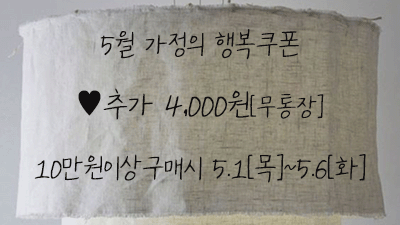 5월 가정의 행복쿠폰
♥추가 4,000원[무통장]
10만원이상구매시 5.1[목]~5.6[화]